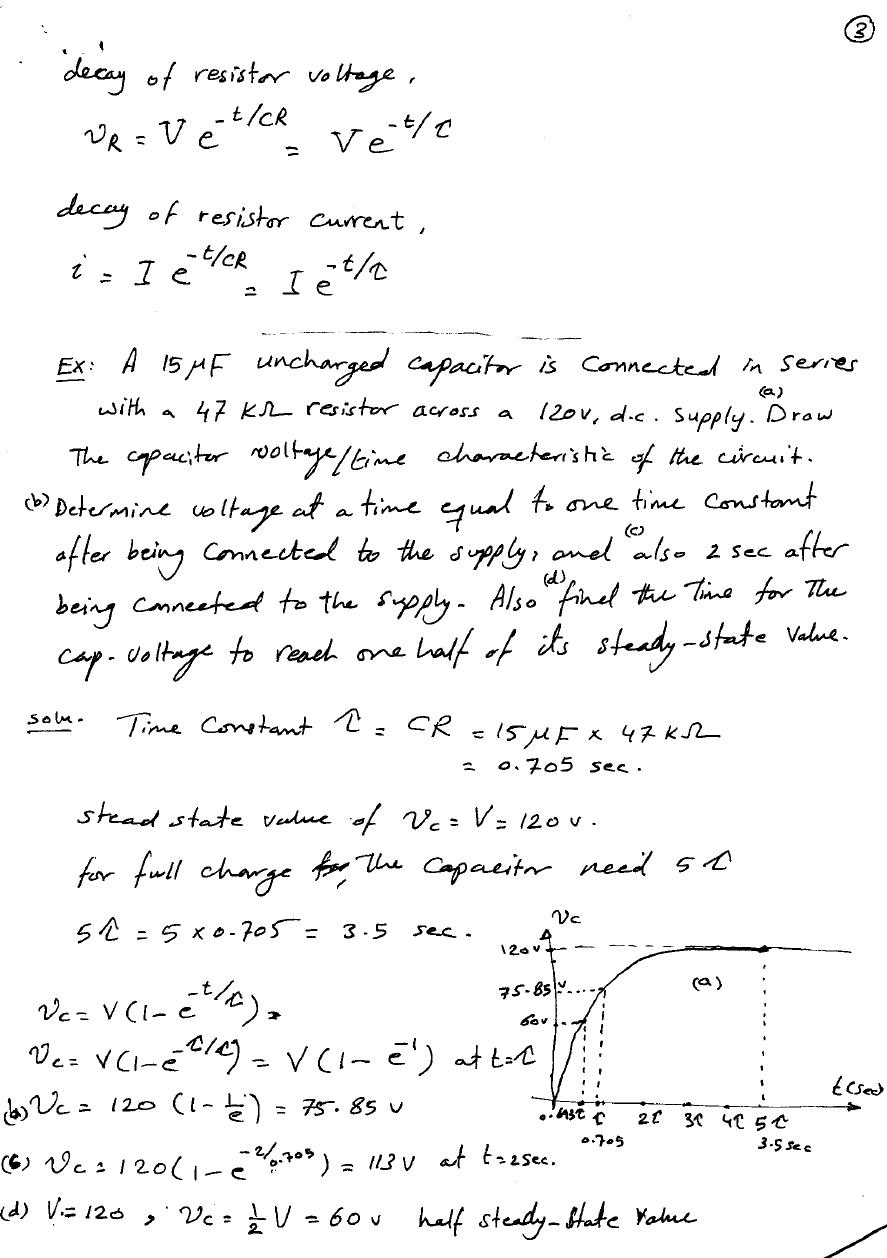 3
decay of resistor voltage,
vR = V e^-t/CR = V e^-t/τ
decay of resistor current,
i = I e^-t/CR = I e^-t/τ
Ex: A 15 μF uncharged capacitor is connected in series
with a 47 KΩ resistor across a 120v, d.c. supply. (a) Draw
The capacitor voltage/time characteristic of the circuit.
(b) Determine voltage at a time equal to one time constant
after being connected to the supply, and (c) also 2 sec after
being connected to the supply. Also (d) find the Time for The
cap. voltage to reach one half of its steady-state value.
soln. Time Constant τ = CR = 15 μF x 47 KΩ
= 0.705 sec.
stead state value of Vc = V = 120 v.
for full charge The Capacitor need 5τ
5τ = 5 x 0.705 = 3.5 sec.
Vc
120v
75.85v
(a)
60v
t(sec)
τ 2τ 3τ 4τ 5τ
0.705 3.5 sec
Vc = V(1- e^-t/τ)
Vc = V(1-e^-τ/τ) = V(1- e^-1) at t=τ
(b) Vc = 120 (1- 1/e) = 75.85 v
(c) Vc = 120(1-e^-2/0.705) = 113 V at t=2sec.
(d) V = 120, Vc = 1/2 V = 60 v half steady-state value